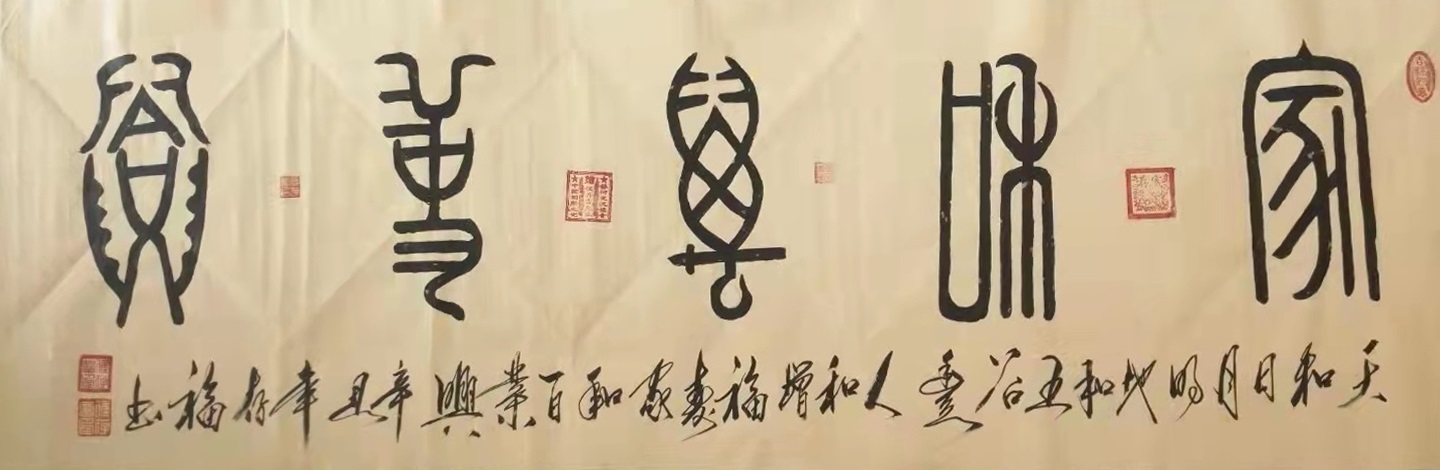 家和萬事興
天和日月明地和五谷豐人和增福寿家和百業興辛丑年存福书